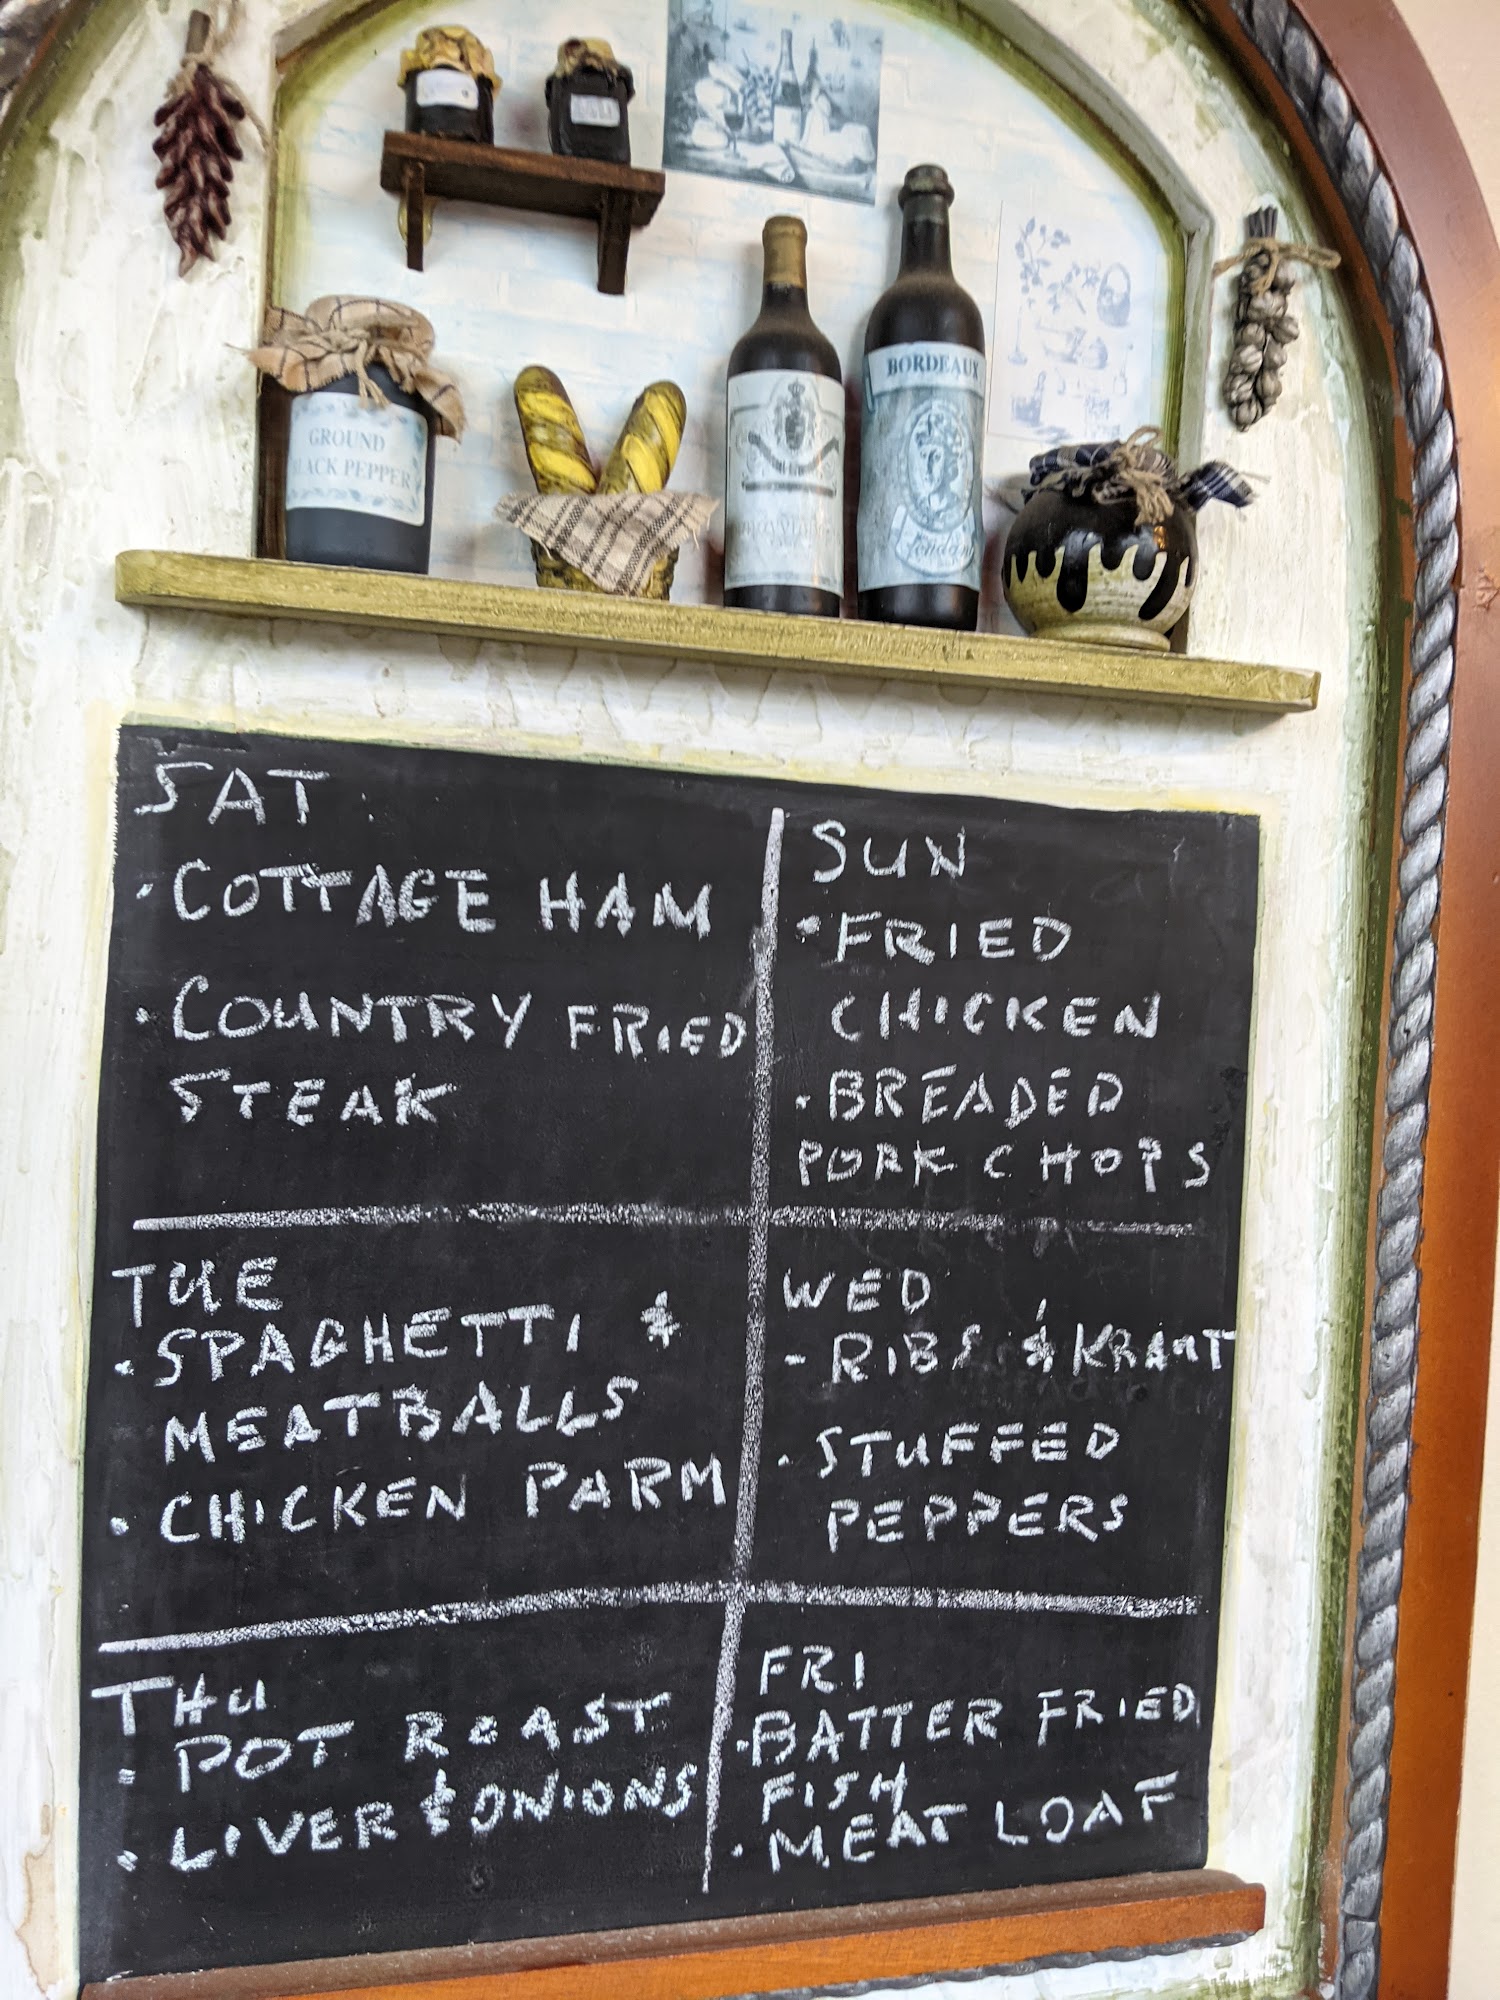 GROUND
BLACK PEPPER
BORDEAUX
SAT
· COTTAGE HAM
· COUNTRY FRIED
STEAK
SUN
· FRIED
CHICKEN
· BREADED
PORK CHOPS
TUE
· SPAGHETTI &
MEATBALLS
· CHICKEN PARM
WED
- RIBS & KRAUT
· STUFFED
PEPPERS
THU
· POT ROAST
· LIVER & ONIONS
FRI
· BATTER FRIED
FISH
· MEAT LOAF